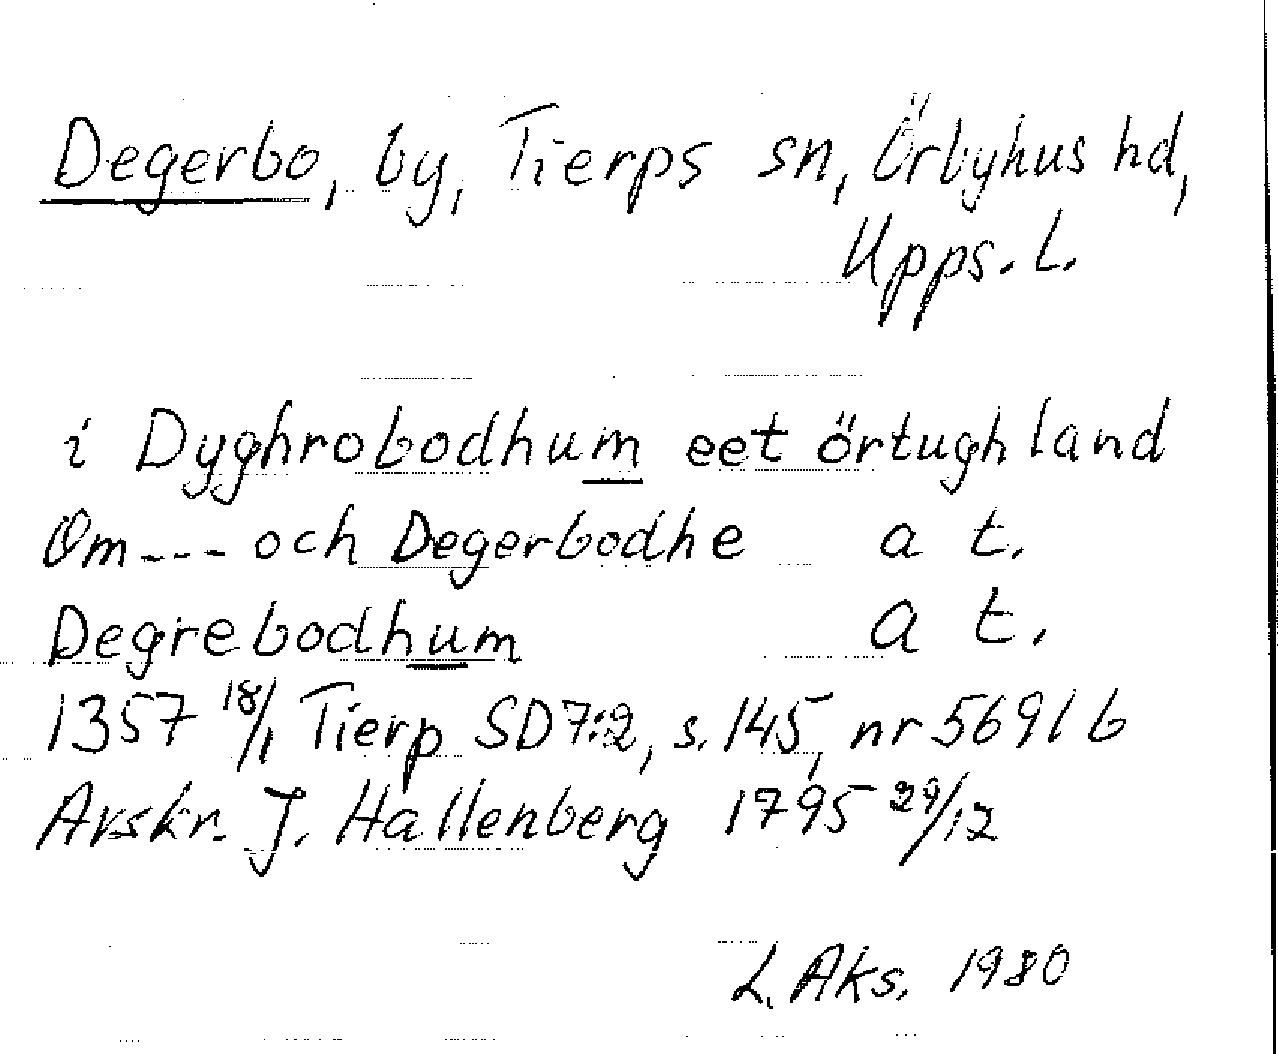 Degerbo, by, Tierps sn, Örbyhus hd,
Upps. L.
i Dyghrobodhum eet örtugh land
Om--- och Degerbodhe a t.
Degrebodhum a t.
1357 18/1 Tierp SD 7:2, s. 145, nr 5691 b
Avskr. J. Hallenberg 1795 29/12
L. Aks. 1980